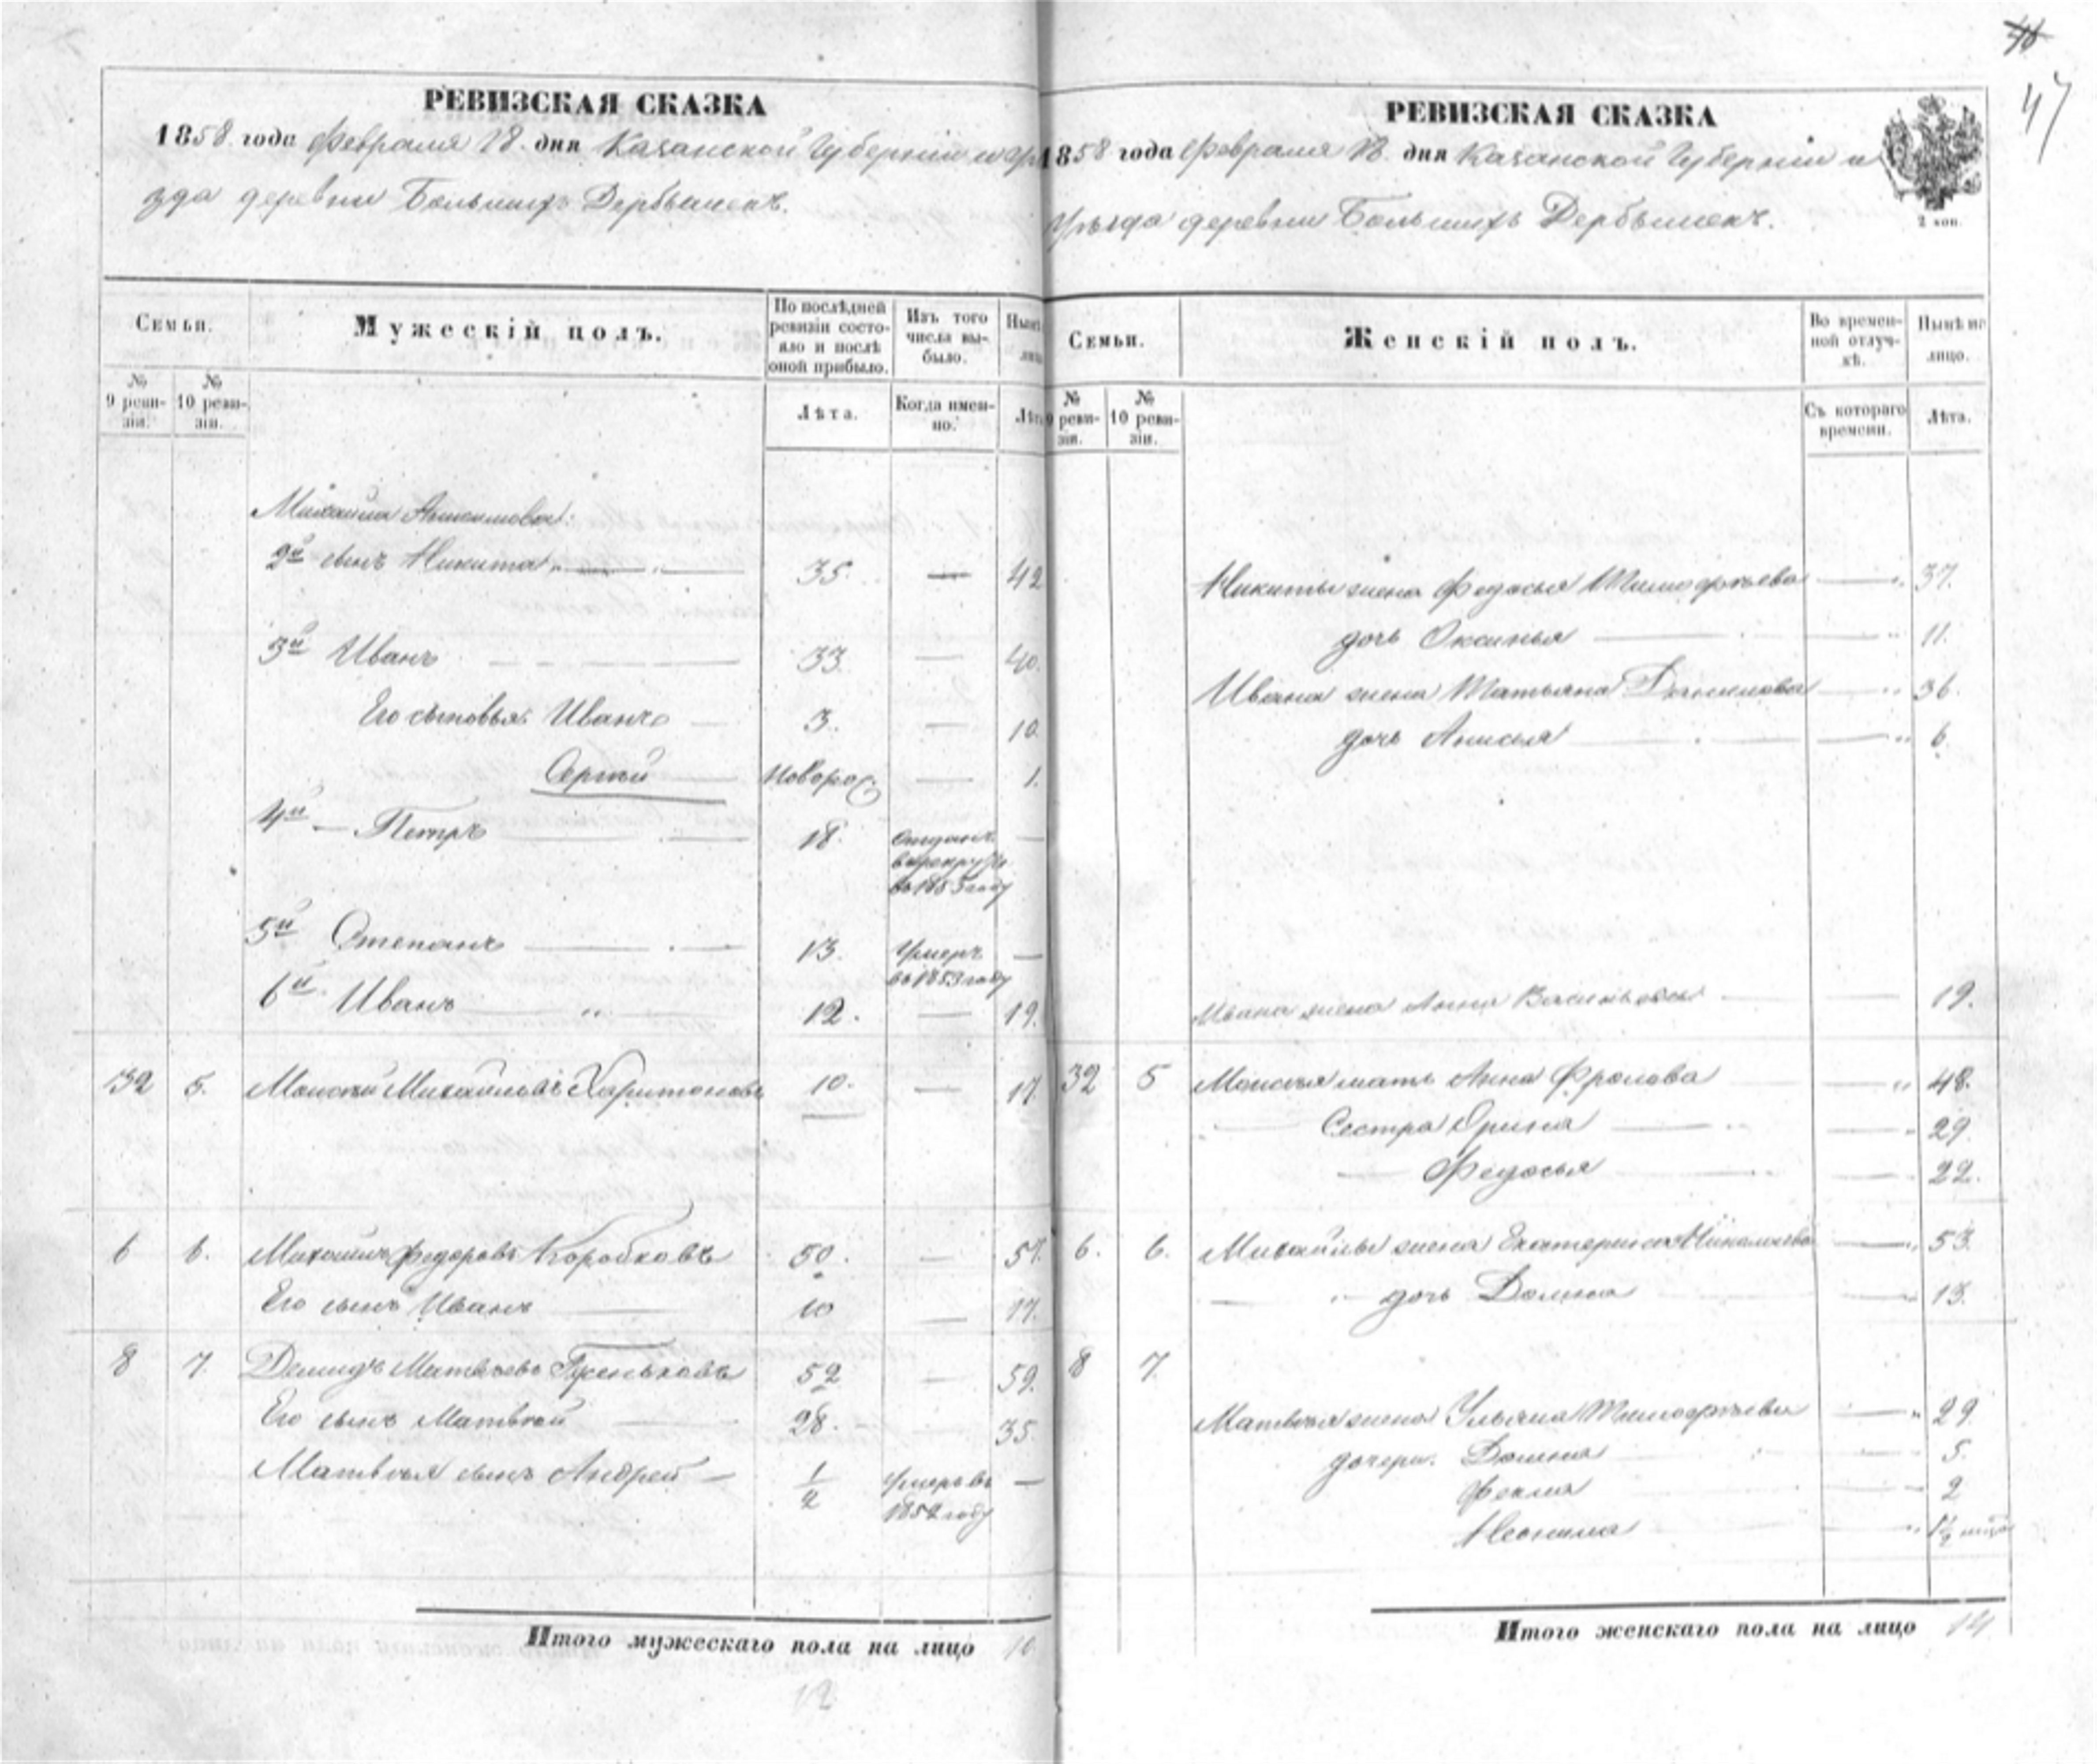 47
РЕВИЗСКАЯ СКАЗКА
1858 года Февраля 18 дня Казанской Губернiи и Уѣ
зда деревни Большихъ Дербышекъ.
Семьи.
Мужескiй полъ.
По послѣдней ревизiи состояло и послѣ оной прибыло.
Изъ того числа выбыло.
№ 9 ревизiи.
№ 10 ревизiи.
Лѣта.
Когда именно.
Михайла
2й сынъ Никита — 35. — 42
3й Иванъ — 33. — 40.
Его сыновья Иванъ — 3. — 10.
Сергѣй — Новорож. — 1.
4й — Петръ — 18. Отданъ —
въ рекруты
въ 1855 году
5й Степанъ — 13. Умеръ —
въ 1853 году
6й Иванъ „ 12. — 19.
32 5. Моисей Михайловъ Харитоновъ 10. — 17.
6 6. Михаилъ Федоровъ Коробковъ 50. — 57.
Его сынъ Иванъ — 10 — 17.
8 7. Демидъ Матвѣевъ 52 — 59.
Его сынъ Матвѣй — 28. — 35.
Матвѣя сынъ Андрей — 1/2 Умеръ въ —
1852 году
Итого мужескаго пола на лицо 10
12
РЕВИЗСКАЯ СКАЗКА
1858 года Февраля 18 дня Казанской Губернiи и
Уѣзда деревни Большихъ Дербышекъ.
2 коп.
Семьи.
Женскiй полъ.
Во временной отлучкѣ.
Нынѣ на лицо.
№ 9 ревизiи.
№ 10 ревизiи.
Съ котораго времени.
Лѣта.
Никиты жена Федосья Тимофѣева — 37.
дочь Оксинья — 11.
Ивана жена Татьяна Данилова — 36.
дочь Анисья — 6.
Ивана жена Анна Васильева — 19.
32 5 Моисея мать Анна Фролова — 48.
Сестра Орина — 29.
— Федосья — 22.
6. 6. Михайлы жена Екатерина Николаева — 53.
— дочь Домна — 13.
8 7.
Матвѣя жена Ульяна Тимофѣева — 29
дочери. Домна — 5.
Фекла — 2
Неонила — 1½
Итого женскаго пола на лицо 14